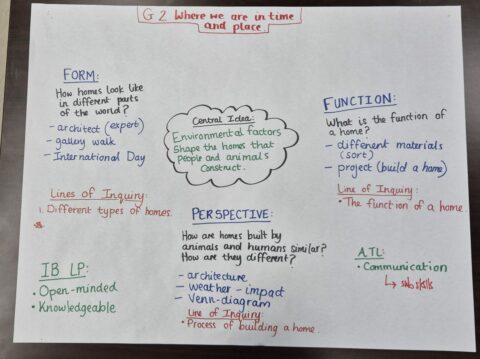 G2 Where we are in time
and place.
FORM:
How homes look like
in different parts
of the world?
- architect (expert)
- gallery walk
- International Day
Lines of Inquiry:
1. Different types of homes.
Central Idea:
Environmental factors
Shape the homes that
People and animals
Construct.
FUNCTION:
What is the function of
a home?
- different materials
(sort)
- project (build a home)
Line of Inquiry:
• The function of a home.
PERSPECTIVE:
How are homes built by
animals and humans similar?
How are they different?
- architecture
- weather - impact
- Venn-diagram
Line of Inquiry:
• Process of building a home.
IB LP:
• Open-minded
• Knowledgeable
ATL:
• Communication
↳ subskills